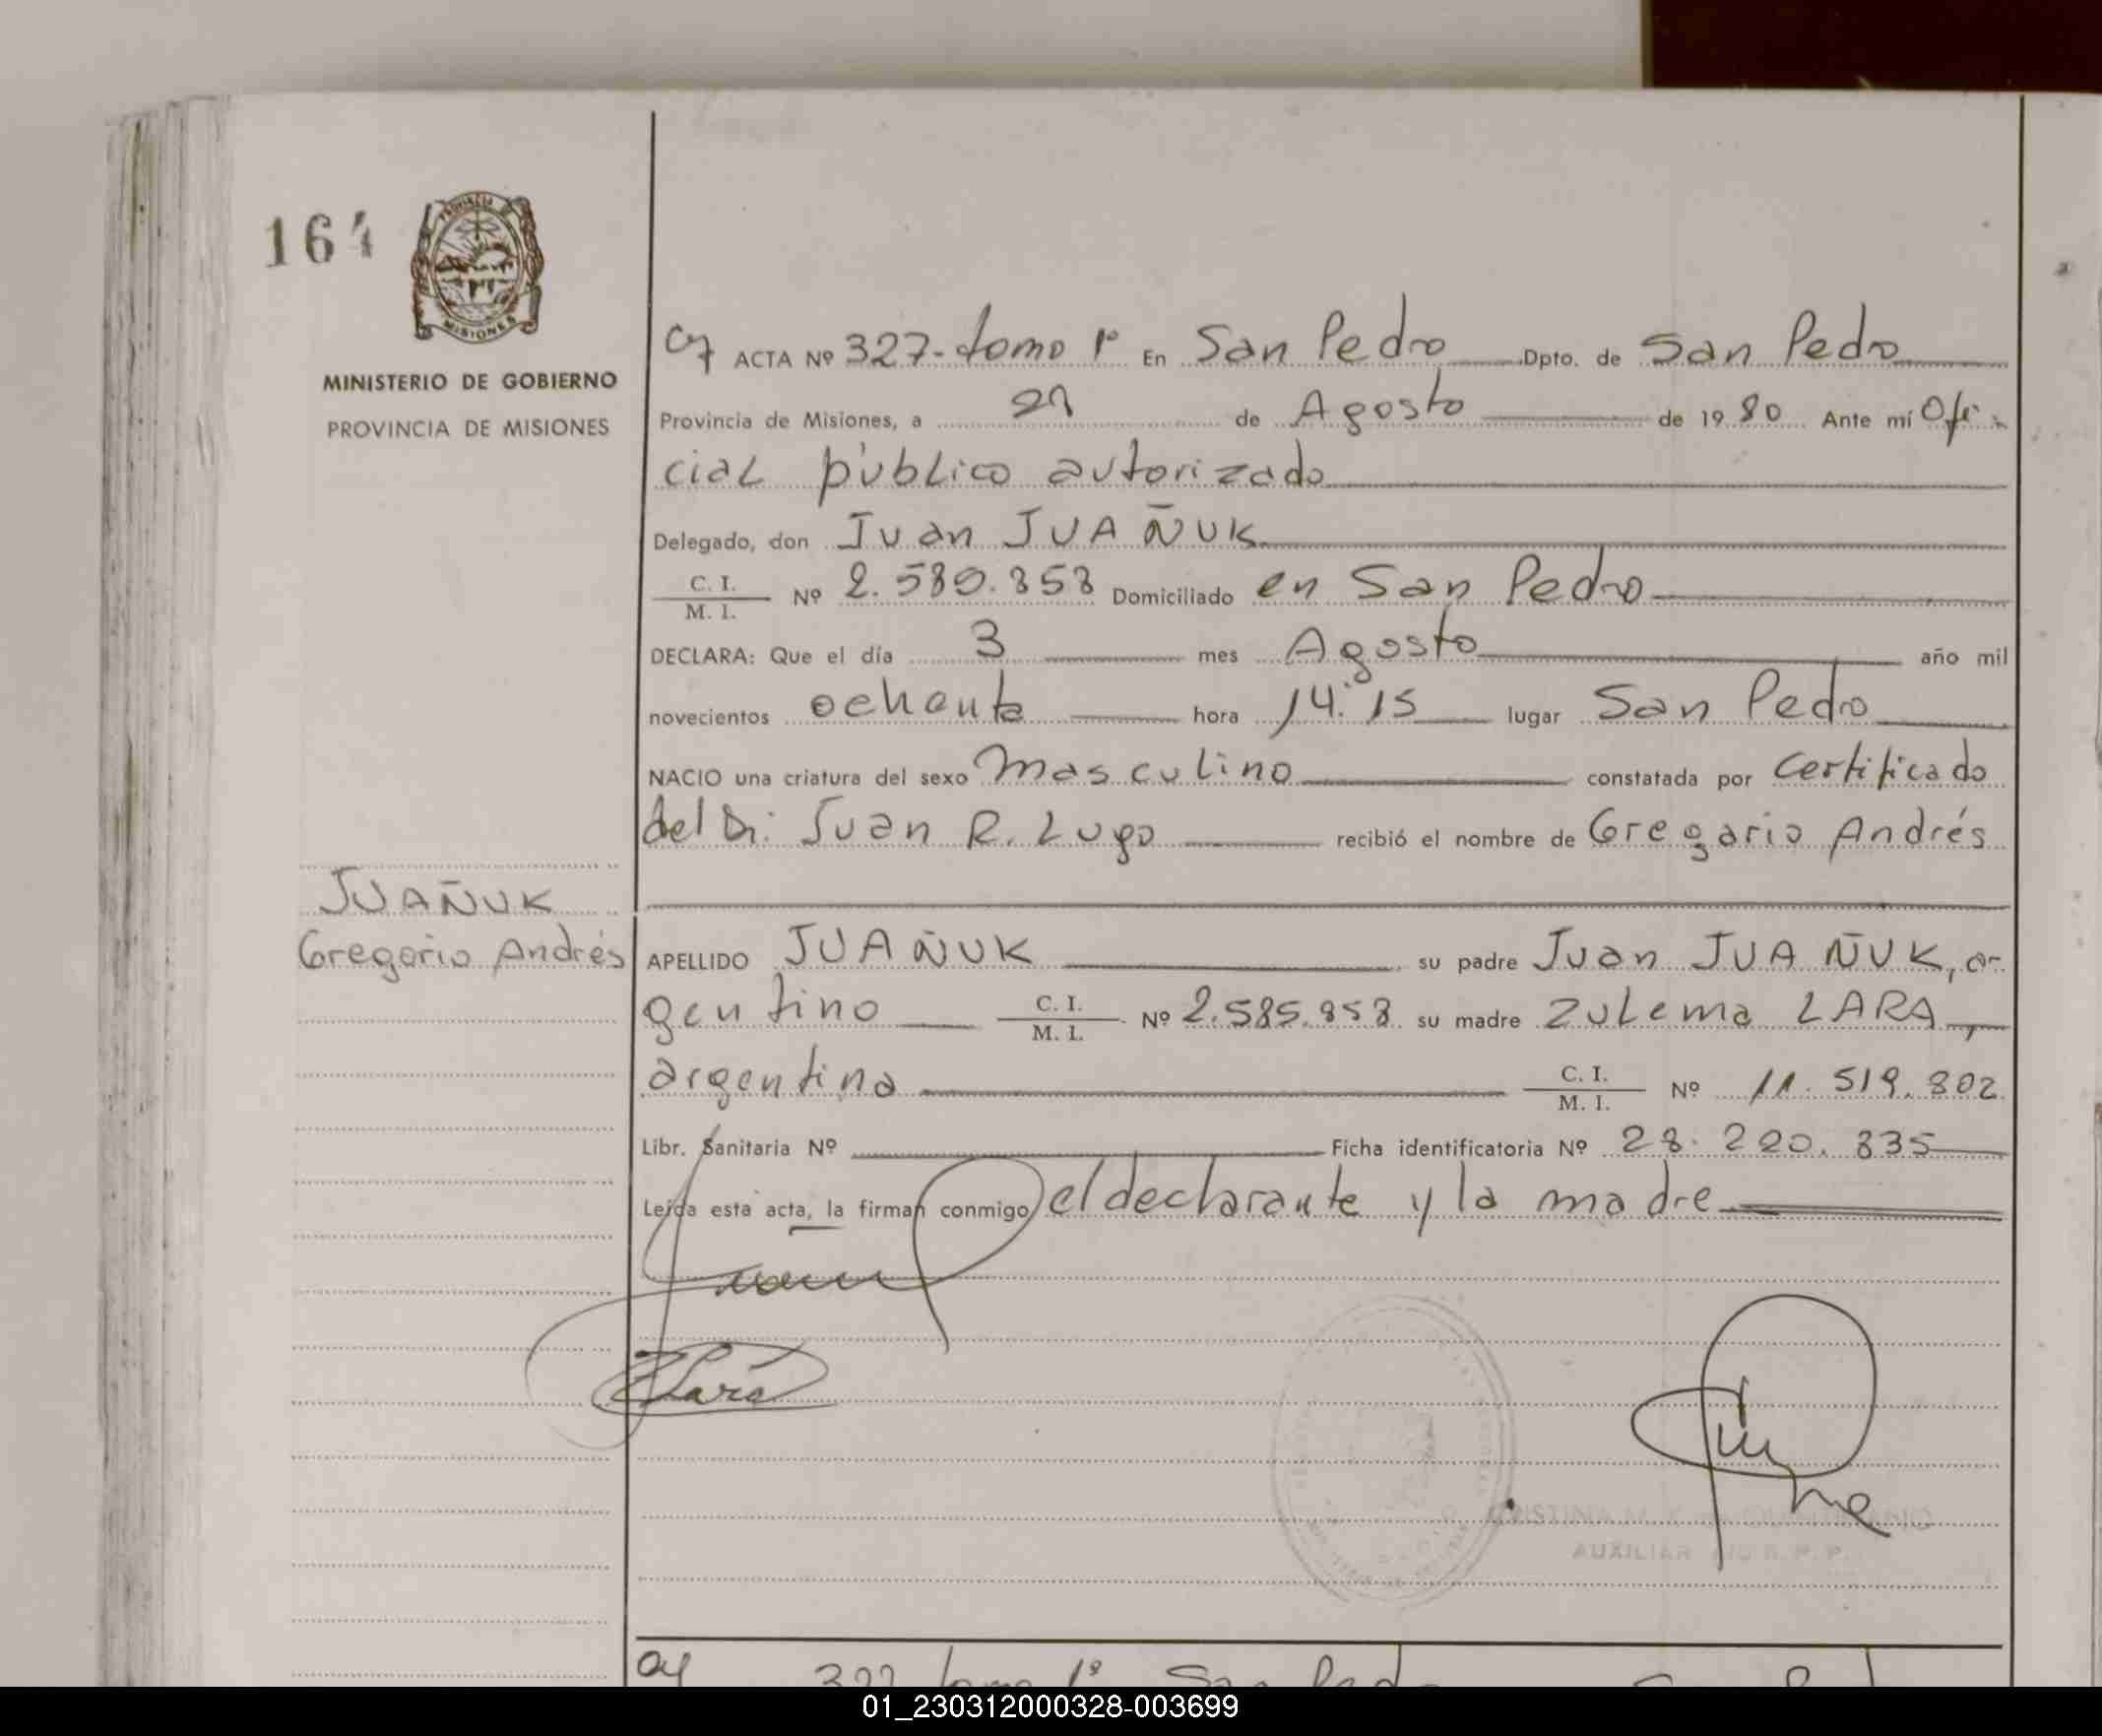 164
PROVINCIA DE
MISIONES
MINISTERIO DE GOBIERNO
PROVINCIA DE MISIONES
ACTA Nº 327- tomo 1º En San Pedro Dpto. de San Pedro
Provincia de Misiones, a de Agosto de 1980 Ante mí Ofi-
cial público autorizado
Delegado, don Juan JUAÑUK
C. I.
M. I. Nº Domiciliado en San Pedro
DECLARA: Que el día 3 mes Agosto año mil
novecientos ochenta hora 14:15 lugar San Pedro
NACIO una criatura del sexo masculino constatada por Certificado
del Dr. Juan R. Lugo recibió el nombre de Gregorio Andrés
JUAÑUK
Gregorio Andrés
APELLIDO JUAÑUK su padre Juan JUAÑUK, ar-
gentino C. I.
M. I. Nº 2.585.958 su madre Zulema LARA,
argentina C. I.
M. I. Nº 11.519.802
Libr. Sanitaria Nº Ficha identificatoria Nº 28.220.835
Leída esta acta, la firman conmigo el declarante y la madre
ZLara
AUXILIAR
327 tomo 1º San Pedro
01_230312000328-003699